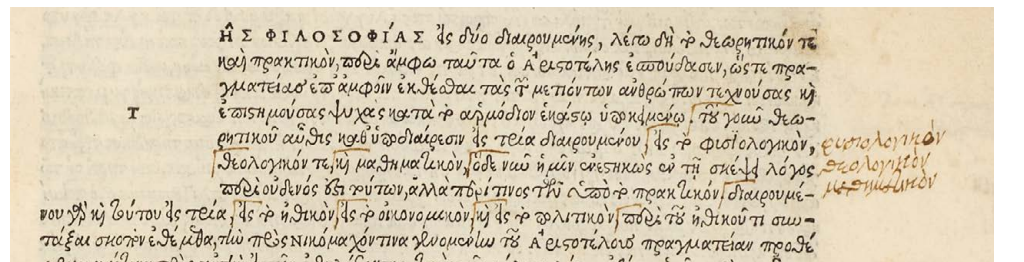 ῆΣ ΦΙΛΟΣΟΦΊΑΣ εἰς δύο διαιρουμένης, λέγω δὴ τὸ θεωρητικόν τε
καὶ πρακτικὸν, περὶ ἄμφω ταῦτα ὁ Ἀριστοτέλης ἐσπούδασεν, ὥστε πρα-
γματείας ἐπ' ἀμφοῖν ἐκθέσθαι τὰς τῶν μετιόντων ἀνθρώπων τεχνούσας καὶ
Τ
ἐπιστημούσας ψυχὰς κατὰ τὸ ἁρμόδιον ἑκάστῳ ὑποκειμένῳ. τοῦ γοῦν θεω-
ρητικοῦ αὖθις καθ' ὑποδιαίρεσιν εἰς τρία διαιρουμένου, εἰς τὸ φυσιολογικὸν,
φυσιολογικὸν
θεολογικόν τε, καὶ μαθηματικὸν, ὁ δὲ νῦν ἡμῖν ἐνεστηκὼς ἐν τῇ σκέψει λόγος
θεολογικὸν
περὶ οὐδενός ἐστι τούτων, ἀλλὰ περί τινος τῶν ὑπὸ τὸ πρακτικὸν, διαιρουμέ-
μαθηματικὸν
νου γὰρ καὶ τούτου εἰς τρία, εἰς τὸ ἠθικὸν, εἰς τὸ οἰκονομικὸν, καὶ εἰς τὸ πολιτικὸν, περὶ τοῦ ἠθικοῦ τι συν-
τάξαι σκοπὸν ἐθέμεθα, τὴν πρὸς Νικόμαχόν τινα γενομένην τοῦ Ἀριστοτέλους πραγματείαν προθέ